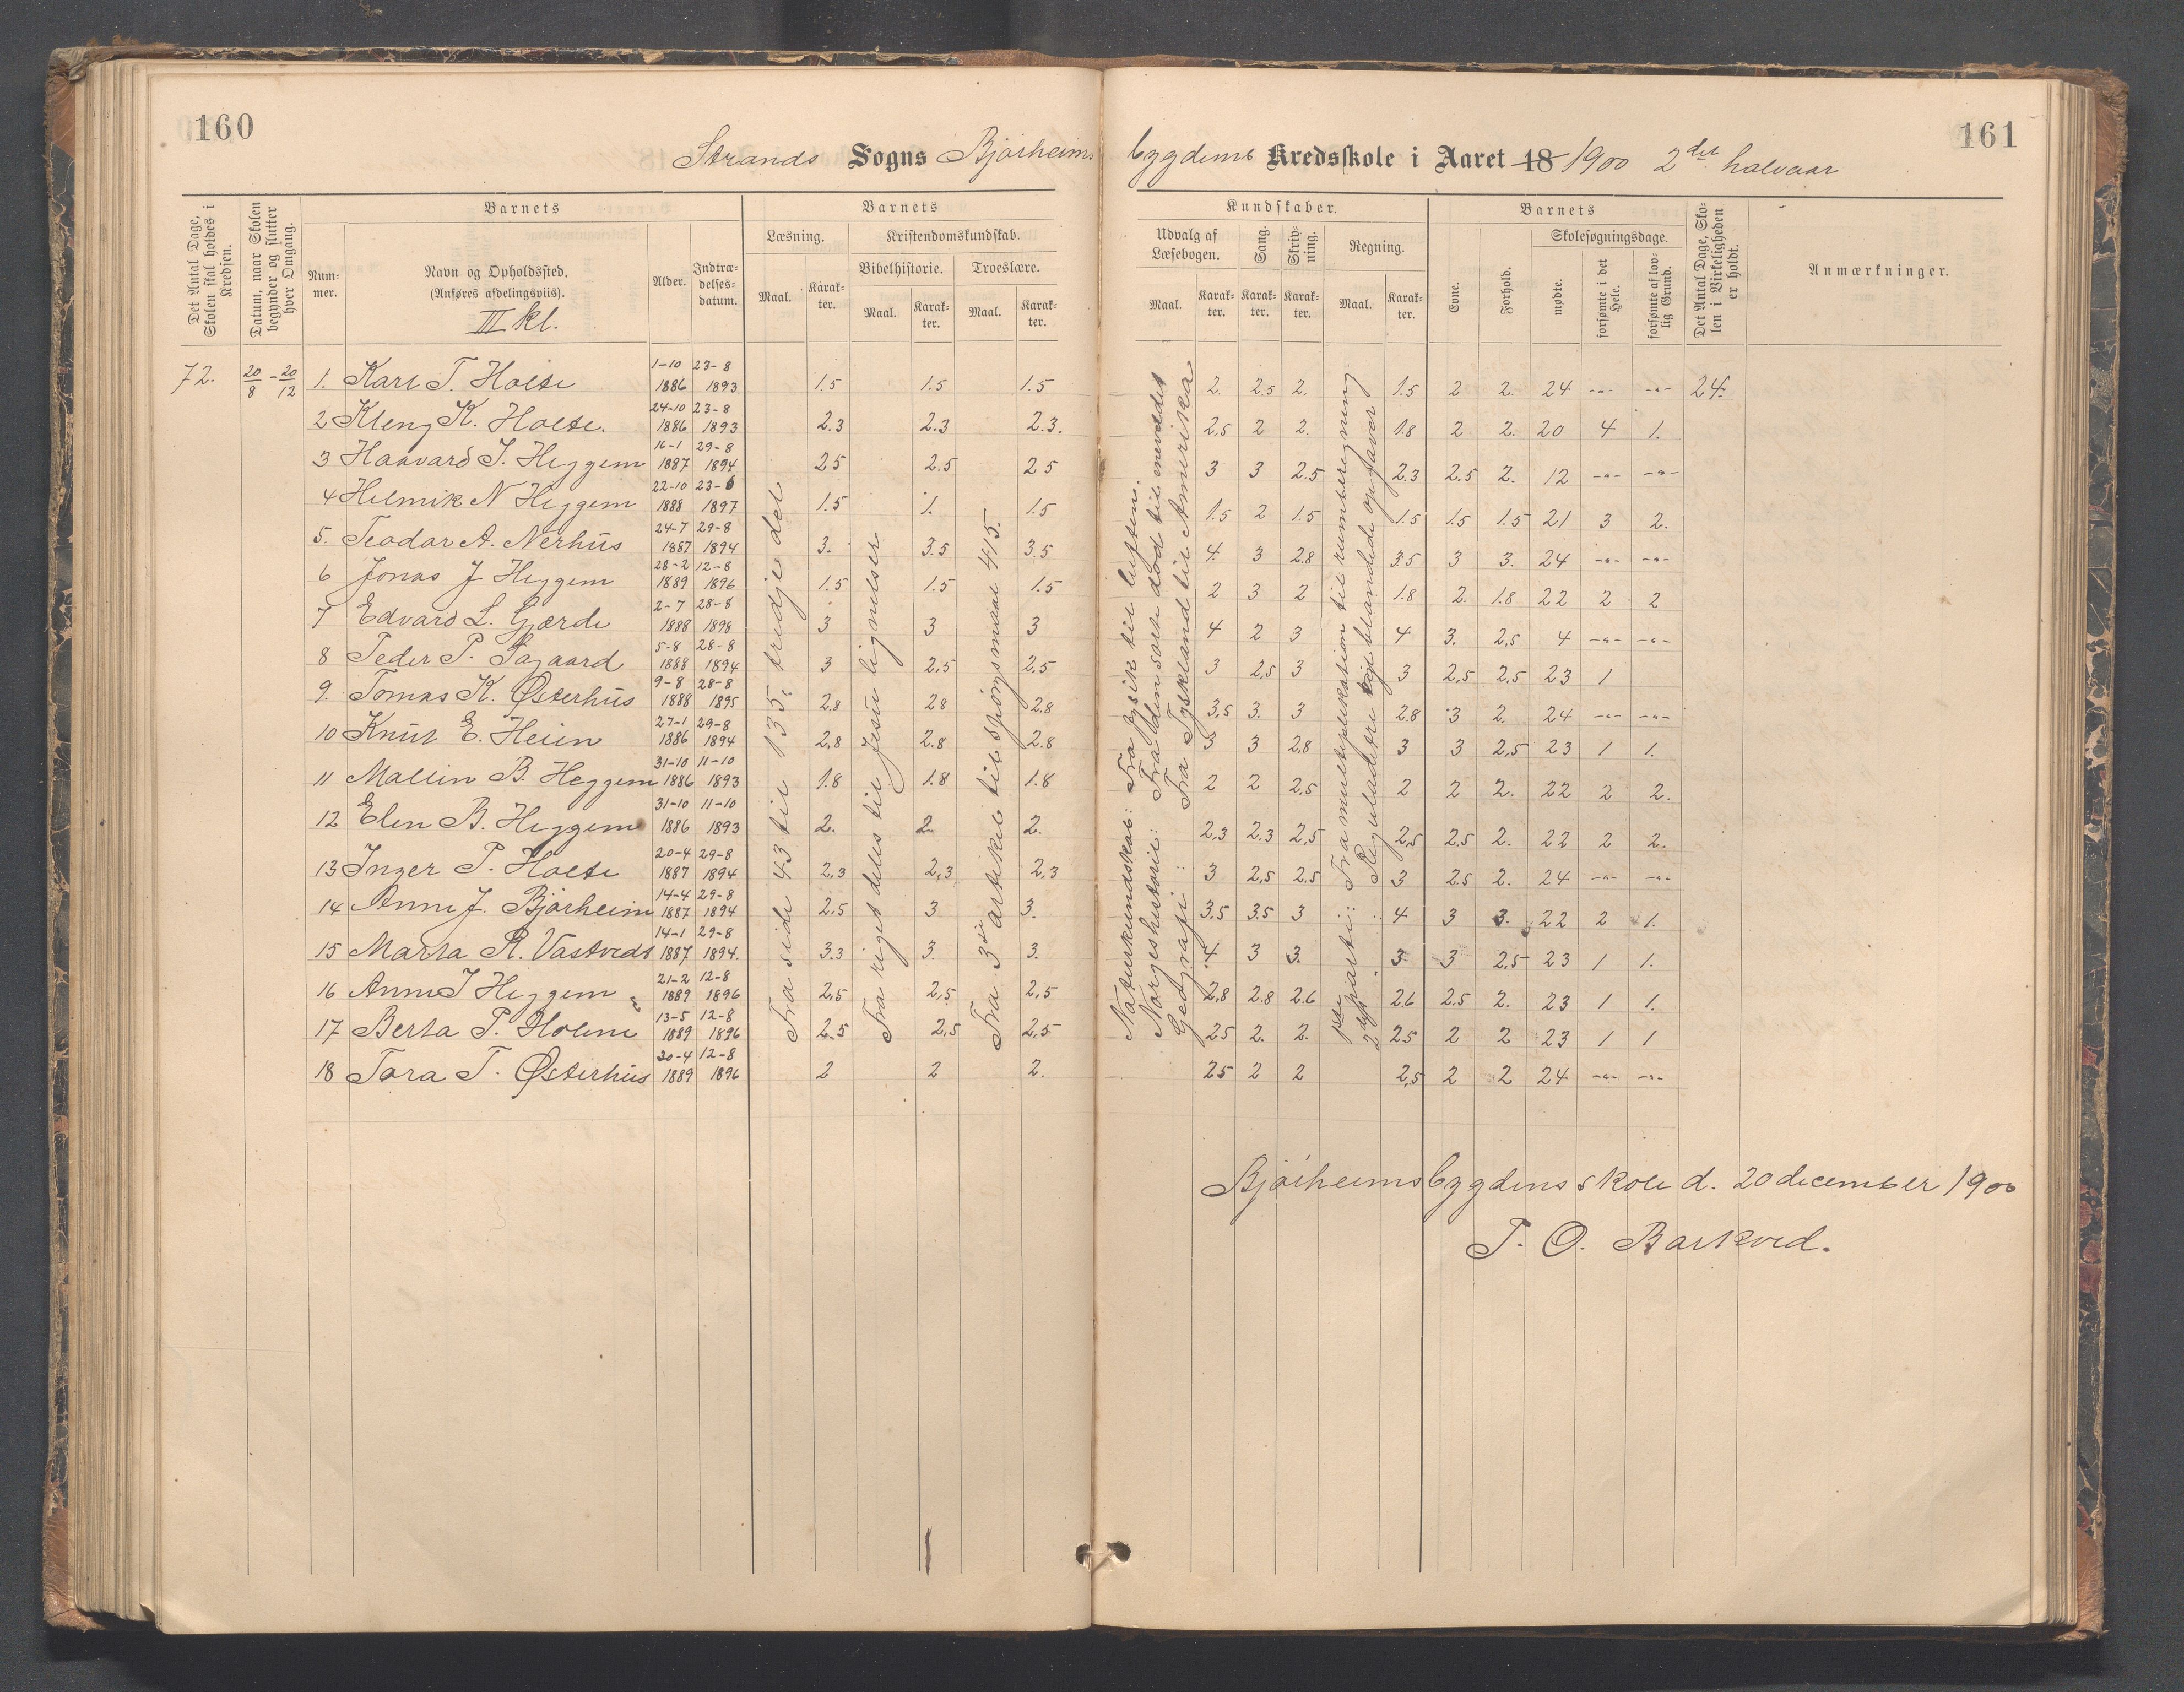 160
161
Strands Sogns Bjørheims bygdens Kredsskole i Aaret 18 1900 2det halvaar
Det Antal Dage, Skolen skal holdes i Kredsen.
Datum, naar Skolen begynder og slutter hver Omgang.
Barnets
Nummer.
Navn og Opholdssted.
(Anføres afdelingsviis).
III kl.
Alder.
Indtrædelsesdatum.
Barnets
Læsning.
Kristendomskundskab.
Bibelhistorie.
Troeslære.
Maal. Karakter. Maal. Karakter. Maal. Karakter.
Kundskaber.
Udvalg af Læsebogen.
Sang.
Skrivning.
Regning.
Maal. Karakter. Karakter. Karakter. Maal. Karakter.
Barnets
Evne.
Forhold.
Skolesøgningsdage.
mødte.
forsømte i det Hele.
forsømte af lovlig Grund.
Det Antal Dage, Skolen i Virkeligheden er holdt.
Anmærkninger.
72. 20/8 - 20/12 1. Karl T. Holte 1-10 1886 23-8 1893 1.5 1.5 1.5 2. 2.5 2. 1.5 2 2. 24 -"- -"- 24.
2 Kleng K. Holte. 24-10 1886 23-8 1893 2.3 2.3 2.3. 2,5 2 2. 1.8 2 2. 20 4 1.
3 Haavard I. Heggem 16-1 1887 29-8 1894 25 2.5 25 3 3 2.5 2.3 2.5 2. 12 -"- -"-
4 Helmik N Heggem 22-10 1888 23-6 1897 1.5 1. 1.5 1.5 2 1.5 1.5 1.5 1.5 21 3 2.
5. Teodor A. Nerhus 24-7 1887 29-8 1894 3. 3.5 3.5 4 3 2.8 3.5 3 3. 24 -"- -"-
6 Jonas J Heggem 28-2 1889 12-8 1896 1.5 1.5 1.5 2 3 2 1.8 2. 1.8 22 2 2
7 Edvard L. Gjerde 2-7 1888 28-8 1898 3 3 3 4 2 3 4 3. 2,5 4 -"- -"-
8 Peder P. Fagaard 5-8 1888 28-8 1894 3 2,5 2,5 3 2,5 3 3 2,5 2,5 23 1
9. Tomas K. Østerhus 9-8 1888 28-8 1895 2,8 28 2,8 3,5 3. 3 2.8 3 2. 24 -"- -"-
10 Knut E. Heien 27-1 1886 29-8 1894 2,8 2.8 2.8 3 3 2,8 3 3 2,5 23 1 1.
11 Mallin B. Heggem 31-10 1886 11-10 1893 1.8 1.8 1.8 2 2 2,5 2 2 2. 22 2 2.
12 Elen B. Heggem 31-10 1886 11-10 1893 2. 2. 2. 2,3 2.3 2,5 2,5 2.5 2. 22 2 2.
13 Inger P. Holte 20-4 1887 29-8 1894 2,3 2,3 2,3 3 2,5 2.5 3 2.5 2. 24 -"- -"-
14 Anne J. Bjørheim 14-4 1887 29-8 1894 2.5 3 3. 3.5 3.5 3 4 3 3. 22 2 1.
15 Marta R. Vastveds 14-1 1887 29-8 1894. 3.3 3. 3. 4 3 3. 3 3 2,5 23 1 1.
16 Anne I Heggem 21-2 1889 12-8 1896 2,5 2,5 2,5 2,8 2.8 2.6 2.6 2.5 2. 23 1 1.
17 Berta P. Holme 13-5 1889 12-8 1896 2.5 2,5 2,5 25 2. 2. 2.5 2 2 23 1 1
18 Tora T. Østerhus 30-4 1889 12-8 1896 2 2 2. 25 2 2 2,5 2 2 24 -"- -"-
Fra side 43 til 135, tredje del
Fra riget deles til Jesu lignelser
Fra 3die artikel til spørgsmaal 415.
Naturkundskab: Fra fysik til luften.
Norgeshistorie: Fra den sorte død til eneveldet
Geografi: Fra Tyskland til Amerika
1ste parti: Fra multiplikation til rumberegning.
2det " : Reguladetri blandede opgaver
Bjørheimsbygdens skole d. 20 december 1900
T. O. Barkved.